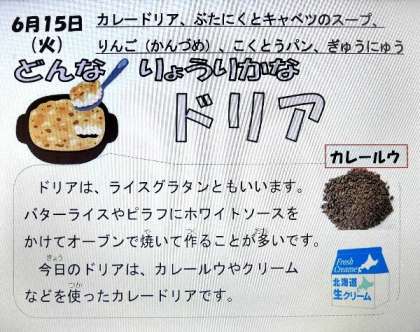 6月15日
（火）
カレードリア、ぶたにくとキャベツのスープ、
りんご（かんづめ）、こくとうパン、ぎゅうにゅう
どんな りょうりかな
ドリア
カレールウ
ドリアは、ライスグラタンともいいます。
バターライスやピラフにホワイトソースを
かけてオーブンで焼いて作ることが多いです。
今日のドリアは、カレールウやクリーム
などを使ったカレードリアです。
Fresh
Cream
北海道
生クリーム